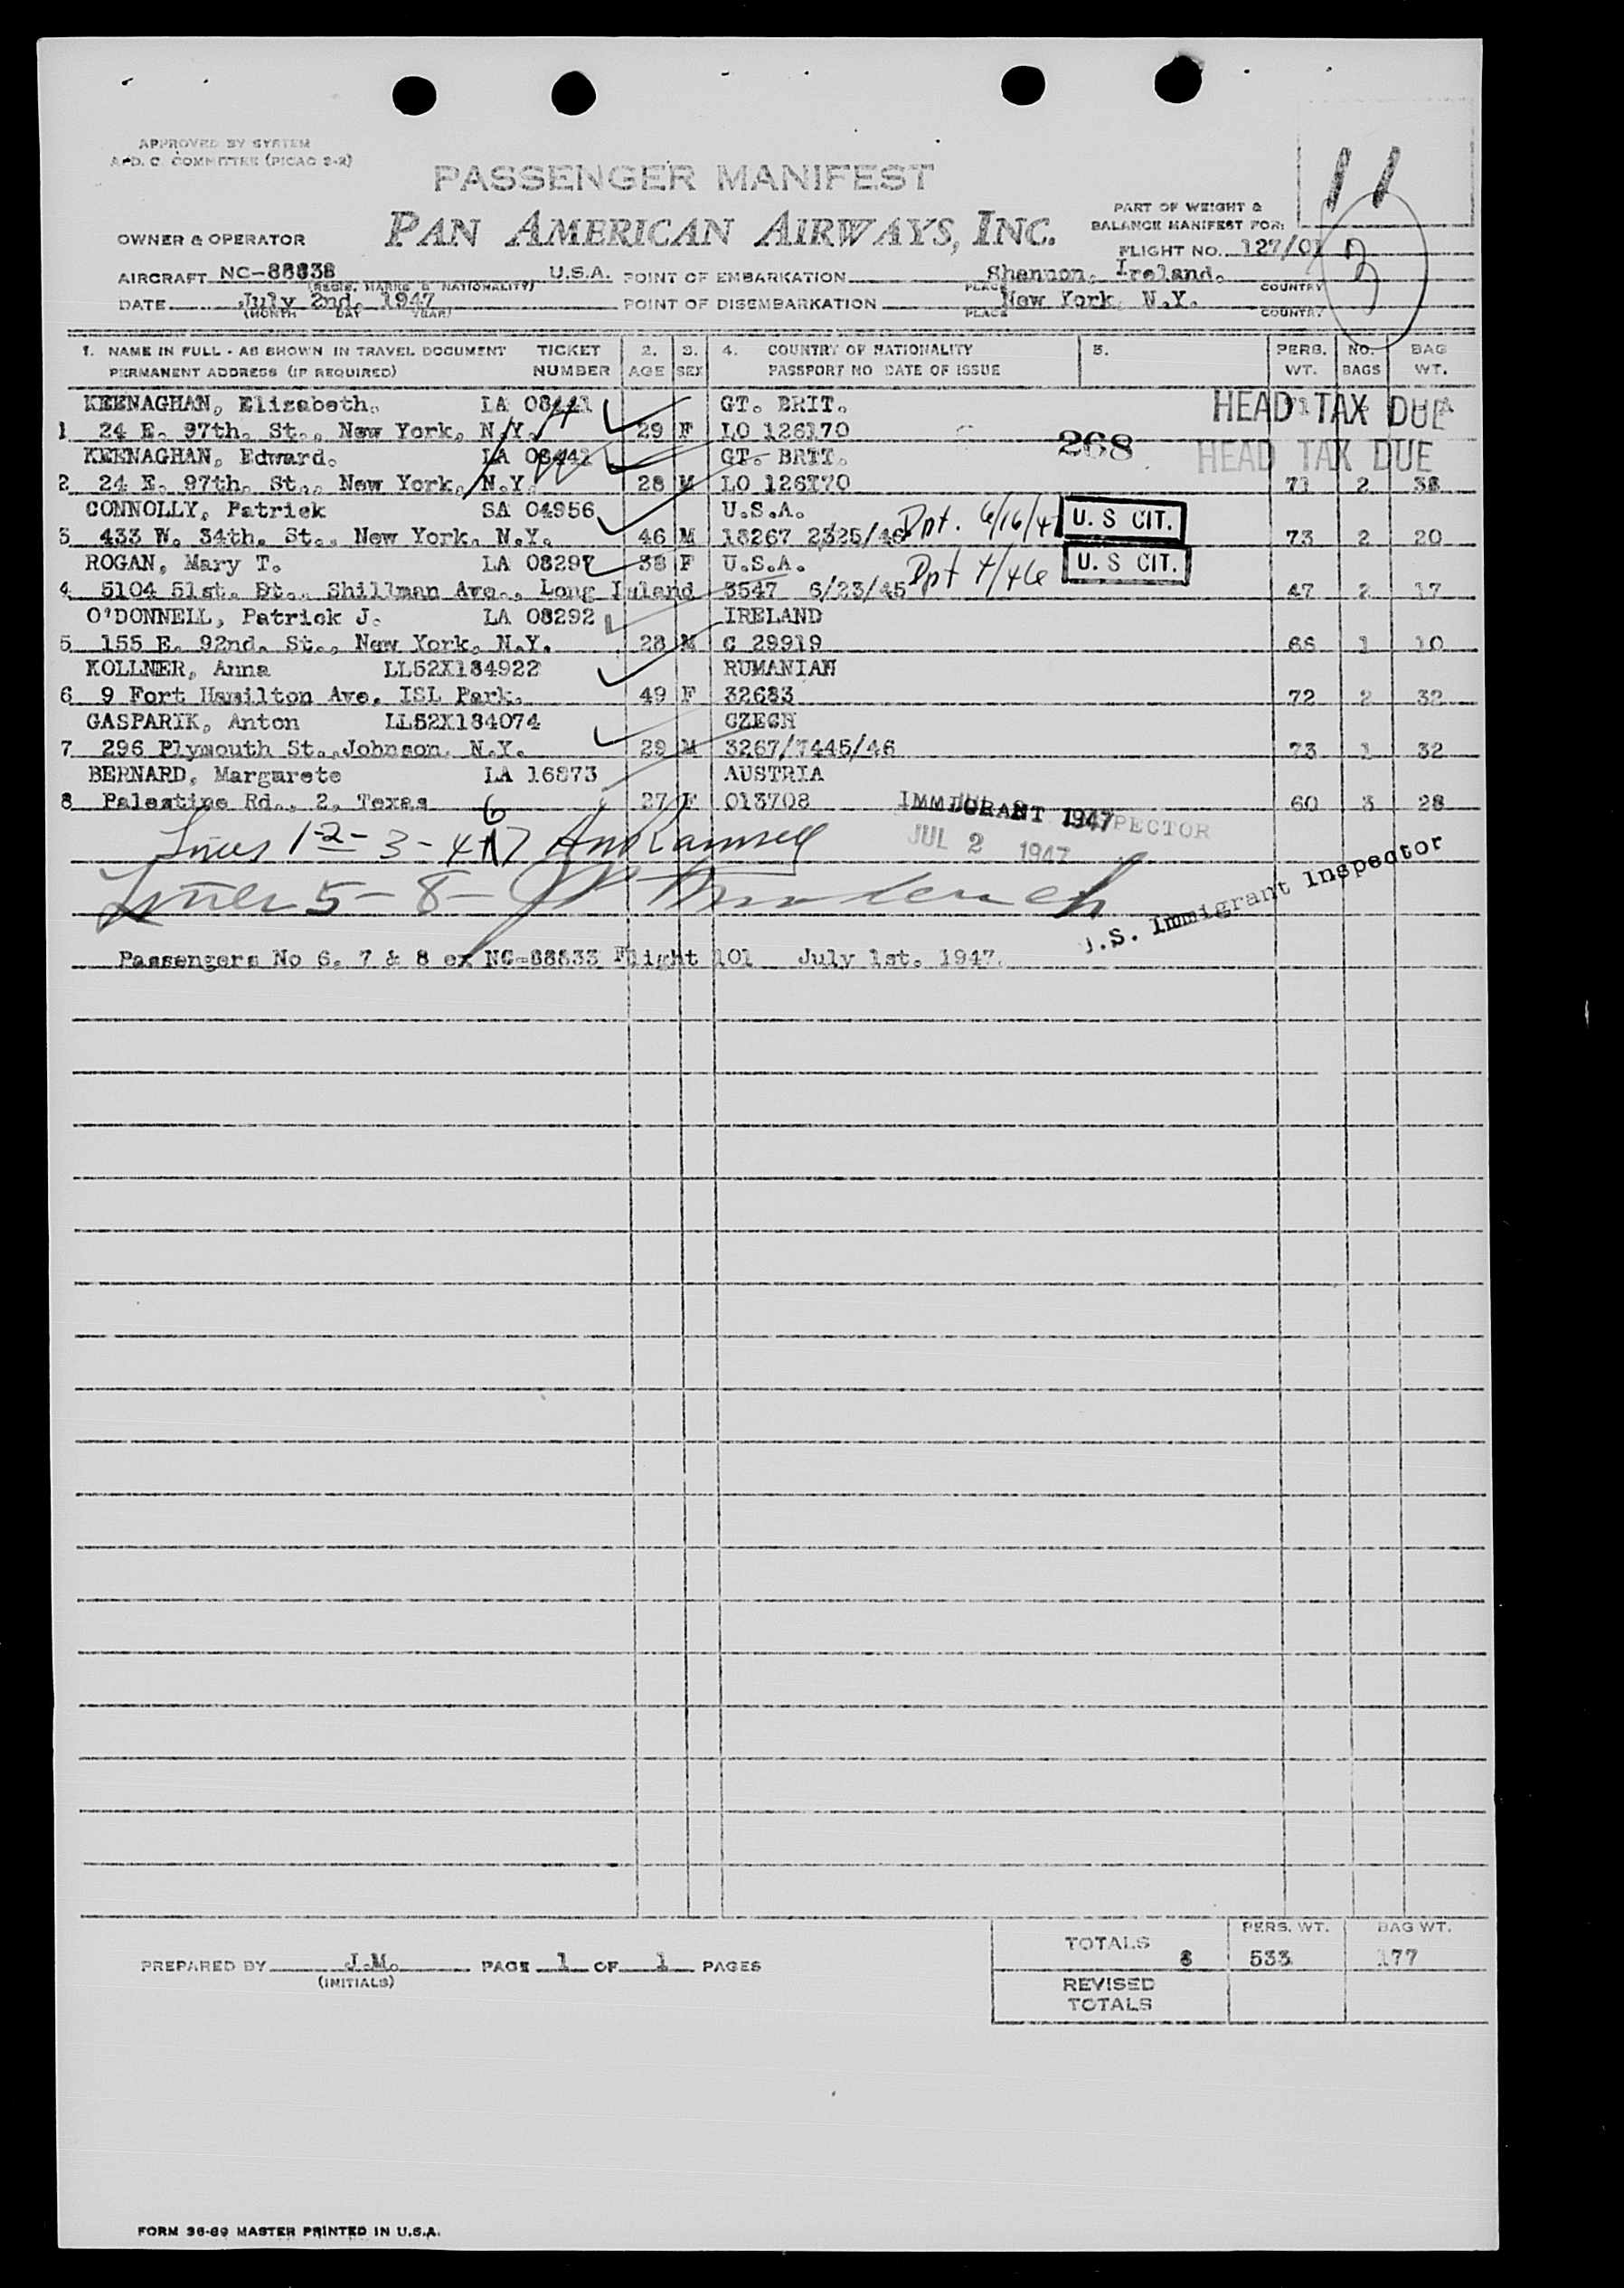 APPROVED BY SYSTEM
A.D.C. COMMITTEE (PICAO 8-2)
PASSENGER MANIFEST
11
PAN AMERICAN AIRWAYS, INC.
PART OF WEIGHT &
BALANCE MANIFEST FOR:
OWNER & OPERATOR
FLIGHT NO. 127/01
AIRCRAFT NC-88838 U.S.A. POINT OF EMBARKATION Shannon, Ireland.
(REGIS. MARKS & NATIONALITY) PLACE COUNTRY
DATE July 2nd. 1947 POINT OF DISEMBARKATION New York, N.Y.
(MONTH DAY YEAR) PLACE COUNTRY
1. NAME IN FULL - AS SHOWN IN TRAVEL DOCUMENT TICKET 2. 3. 4. COUNTRY OF NATIONALITY 5. PERS. NO. BAG
PERMANENT ADDRESS (IF REQUIRED) NUMBER AGE SEX PASSPORT NO DATE OF ISSUE WT. BAGS WT.
KEENAGHAN, Elizabeth. LA 08441 GT. BRIT. HEAD TAX DUE
1 24 E. 97th. St., New York, N.Y. 29 F LO 126170 268
KEENAGHAN, Edward. LA 08441 GT. BRIT. HEAD TAX DUE
2 24 E. 97th. St., New York, N.Y. 28 M LO 126170 71 2 38
CONNOLLY, Patrick SA 04956 U.S.A. Dpt. 6/16/4 U. S CIT.
3 433 W. 34th. St., New York, N.Y. 46 M 13267 2325/46 73 2 20
ROGAN, Mary T. LA 08297 38 F U.S.A. Dpt 4/46 U. S CIT.
4 5104 51st. St., Shillman Ave., Long Island 3547 6/23/45 47 2 17
O'DONNELL, Patrick J. LA 08292 IRELAND
5 155 E. 92nd. St., New York, N.Y. 28 M C 29919 66 1 10
KOLLNER, Anna LL52X184922 RUMANIAN
6 9 Fort Hamilton Ave, ISL Park. 49 F 32683 72 2 32
GASPARIK, Anton LL52X184074 CZECH
7 296 Plymouth St., Johnson, N.Y. 29 M 3267/7445/46 73 1 32
BERNARD, Margarete LA 16873 AUSTRIA
8 Palestine Rd., 2, Texas 27 F 013708 60 3 28
IMMIGRANT INSPECTOR
JUL 2 1947
Lines 1-2-3-4 6 7
Lines 5-8-
U.S. Immigrant Inspector
Passengers No 6, 7 & 8 ex NC-88833 Flight 101 July 1st. 1947.
PERS. WT. BAG WT.
TOTALS 8 533 177
PREPARED BY J.M. PAGE 1 OF 1 PAGES
(INITIALS)
REVISED
TOTALS
FORM 36-69 MASTER PRINTED IN U.S.A.